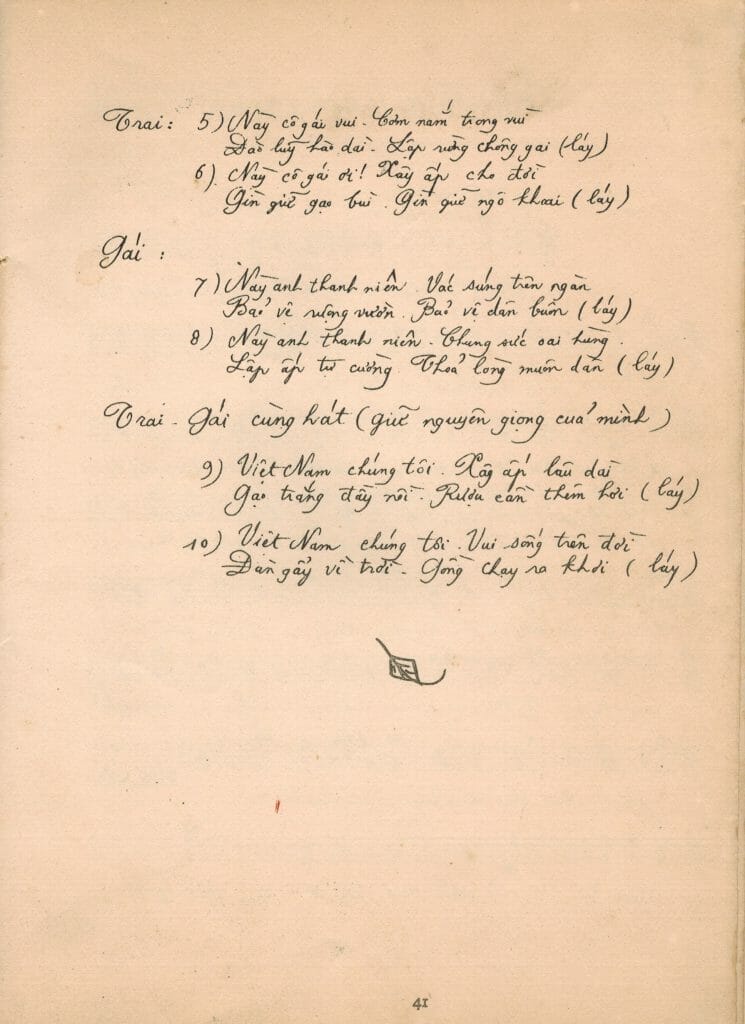 Trai: 5) Này cô gái vui. Cơm nắm trong vùi
Đào luỹ hào dài. Lập rừng chông gai (láy)
6) Này cô gái ơi! Xây ấp cho đời
Gìn giữ gạo bùi. Gìn giữ ngô khoai (láy)
Gái :
7) Này anh thanh niên. Vác súng trên ngàn
Bảo vệ ruộng vườn. Bảo vệ dân buôn (láy)
8) Này anh thanh niên. Chung sức oai hùng.
Lập ấp tự cường. Thoả lòng muôn dân (láy)
Trai - Gái cùng hát (giữ nguyên giọng của mình)
9) Việt Nam chúng tôi. Xây ấp lâu dài
Gạo trắng đầy nồi. Rượu cần thêm hơi (láy)
10) Việt Nam chúng tôi. Vui sống trên đời
Đàn gẩy về trời. Cồng chạy ra khơi (láy)
41